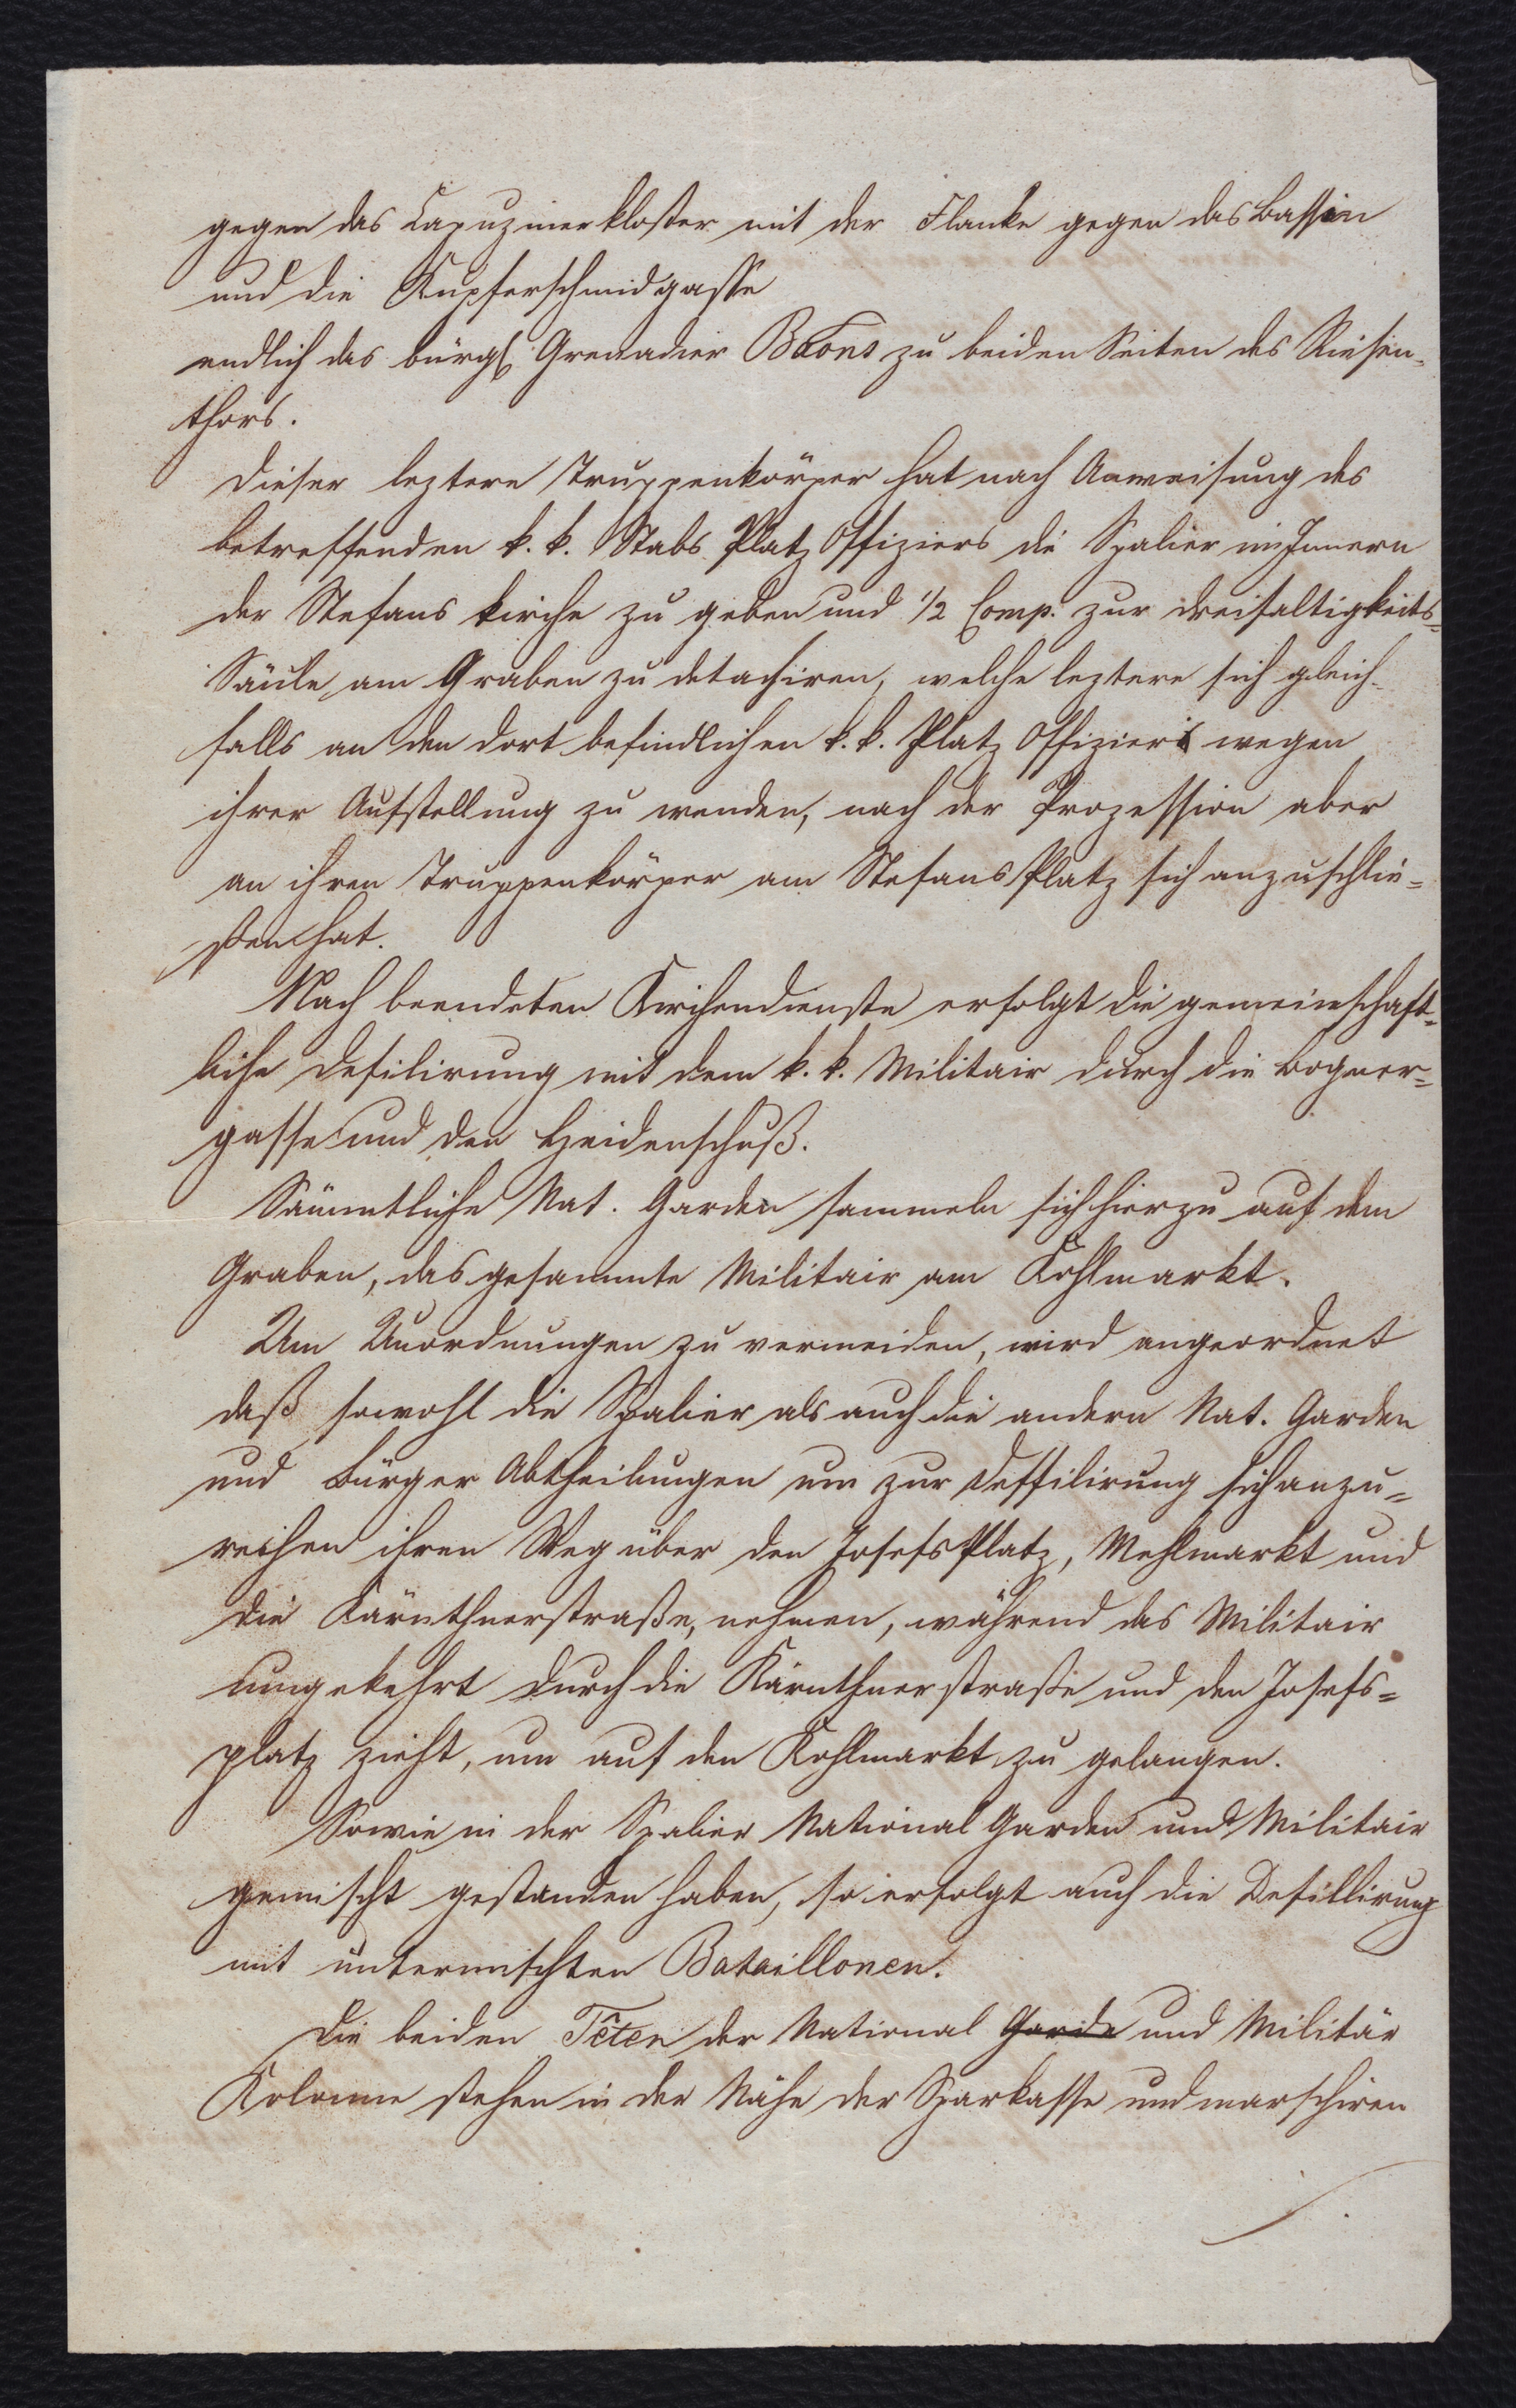 gegen das Capuzinerkloster mit der Flanke gegen das Bassin
und die Kupferschmidgasse
endlich das bürgl. Grenadier Baons zu beiden Seiten des Riesen-
thors.
Dieser leztere Truppenkörper hat nach Anweisung des
betreffenden k. k. Stabs Platz Offiziers die Spalier im Innern
der Stefans kirche zu geben und 1/2 Comp. zur Dreifaltigkeits=
Säule am Graben zu detachiren, welche leztere sich gleich-
falls an den dort befindlichen k. k. Platz Offizier wegen
ihrer Aufstellung zu wenden, nach der Prozession aber
an ihren Truppenkörper am Stefans Platz sich anzuschlie=
ßen hat.
Nach beendeten Kirchendienste erfolgt die gemeinschaft=
liche Defilirung mit dem k. k. Militair durch die Bogner=
gasse und den Heidenschuß.
Sämmtliche Nat. Garden sammeln sich hierzu auf dem
Graben, das gesammte Militair am Kohlmarkt.
Um Unordnungen zu vermeiden, wird angeordnet
daß sowohl die Spalier als auch die andern Nat. Garden
und Bürger Abtheilungen um zur Deffilirung sich anzu=
reihen ihren Weg über den Josefs Platz, Mehlmarkt und
die Kärnthnerstraße, nehmen, während das Militair
umgekehrt durch die Kärnthnerstraße und den Josefs=
platz zieht, um auf den Kohlmarkt zu gelangen.
Sowie in der Spalier National Garden und Militair
gemischt gestanden haben, so erfolgt auch die Defillirung
mit untermischten Bataillonen.
Die beiden Têten der National Garde und Militär
Kolonne stehen in der Nähe der Sparkasse und marschiren